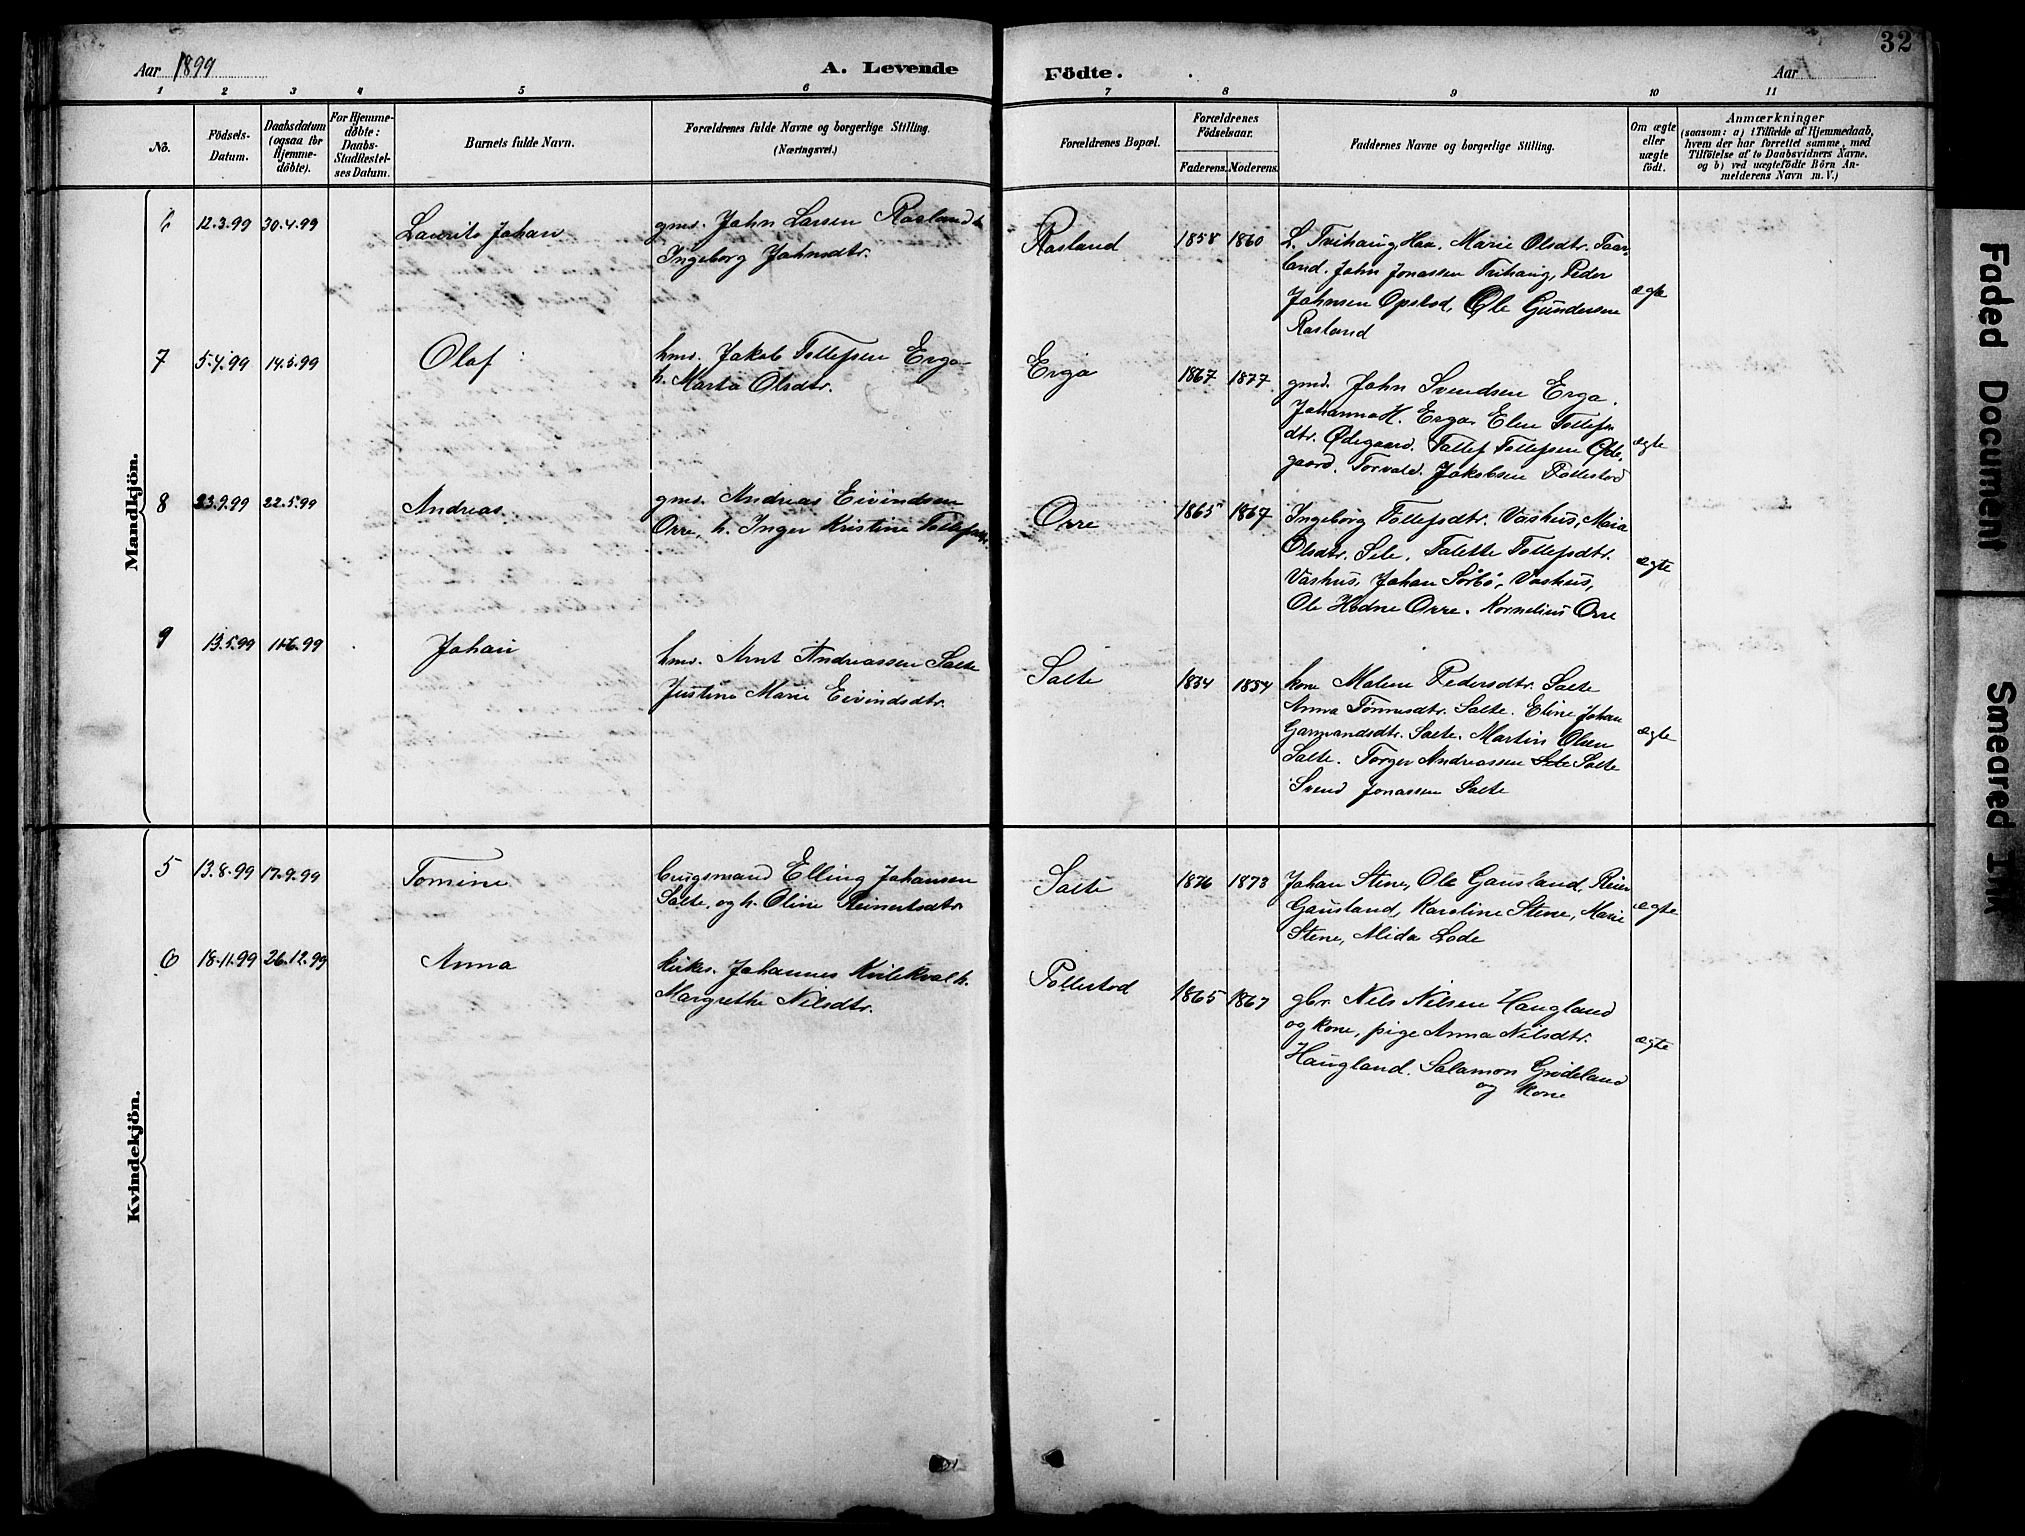 Aar 1899
A. Levende
Födte.
Aar
32
1 2 3 4 5 6 7 8 9 10 11
No.
Födsels-
Datum.
Daabsdatum
(ogsaa for
Hjemme-
döbte).
For Hjemme-
döbte:
Daabs-
Stadfæstel-
ses Datum.
Barnets fulde Navn.
Forældrenes fulde Navne og borgerlige Stilling.
(Næringsvei.)
Forældrenes Bopæl.
Forældrenes
Födselsaar.
Faderens. Moderens.
Faddernes Navne og borgerlige Stilling.
Om ægte
eller
uægte
födt.
Anmærkninger
(saasom: a) i Tilfælde af Hjemmedaab,
hvem der har forrettet samme, med
Tilföielse af to Daabsvidners Navne,
og b) ved uægtefödte Börn An-
melderens Navn m. V.)
Mandkjön.
6 12.3.99 30.4.99
Laurits Johan
gmd. John Larsen Rasland h.
Ingeborg Johnsdtr.
Rasland
1858 1860
L. Tvihaug Haa. Marie Olsdtr. Taar-
land. John Jonassen Tvihaug, Peder
Johnsen Opstad, Ole Gundersen
Rasland
ægte
7 5.4.99 14.5.99
Olaf
hmd. Jakob Tollefsen Erga
h. Marta Olsdtr.
Erga
1867 1877
gmd. John Svendsen Erga.
Johanna H. Erga. Elen Tollefs
dtr. Ødegaard. Tollef Tollefsen Øde-
gaard. Torvald Jakobsen Pollestad
ægte
8 23.9.99 22.5.99
Andreas
gmd. Andreas Eivindsen
Orre, h. Inger Kristine Tollefsdtr.
Orre
1865 1867
Ingeborg Tollefsdtr. Vashus, Maria
Olsdtr. Sele, Talette Tollefsdtr.
Vashus, Johan Sörbö, Vashus,
Ole Hodne Orre. Kornelius Orre
ægte
9 13.5.99 11.6.99
Johan
hmd. Arnt Andreassen Salte
Justine Marie Eivindsdtr.
Salte
1854 1854
kone Malene Pedersdtr. Salte
Anna Tönnesdtr. Salte. Eline Johan
Garmandsdtr. Salte. Martin Olsen
Salte. Torger Andreassen Salte
Svend Jonassen Salte
ægte
Kvindekjön.
5 13.8.99 17.9.99
Tomine
Brugsmand Elling Johansen
Salte, og h. Oline Reinertsdtr.
Salte
1876 1873
Johan Stene, Ole Gausland, Reier
Gausland, Karoline Stene, Marie
Stene, Alida Lode
ægte
6 18.11.99 26.12.99
Anna
kirkes. Johannes Kvilekval h.
Margrethe Nilsdtr.
Pollestad
1865 1867
gbr. Nels Nilsen Haugland
og kone, pige Anna Nilsdtr.
Haugland. Salamon Grødeland
og kone
ægte
Faded Document
Smeared Ink